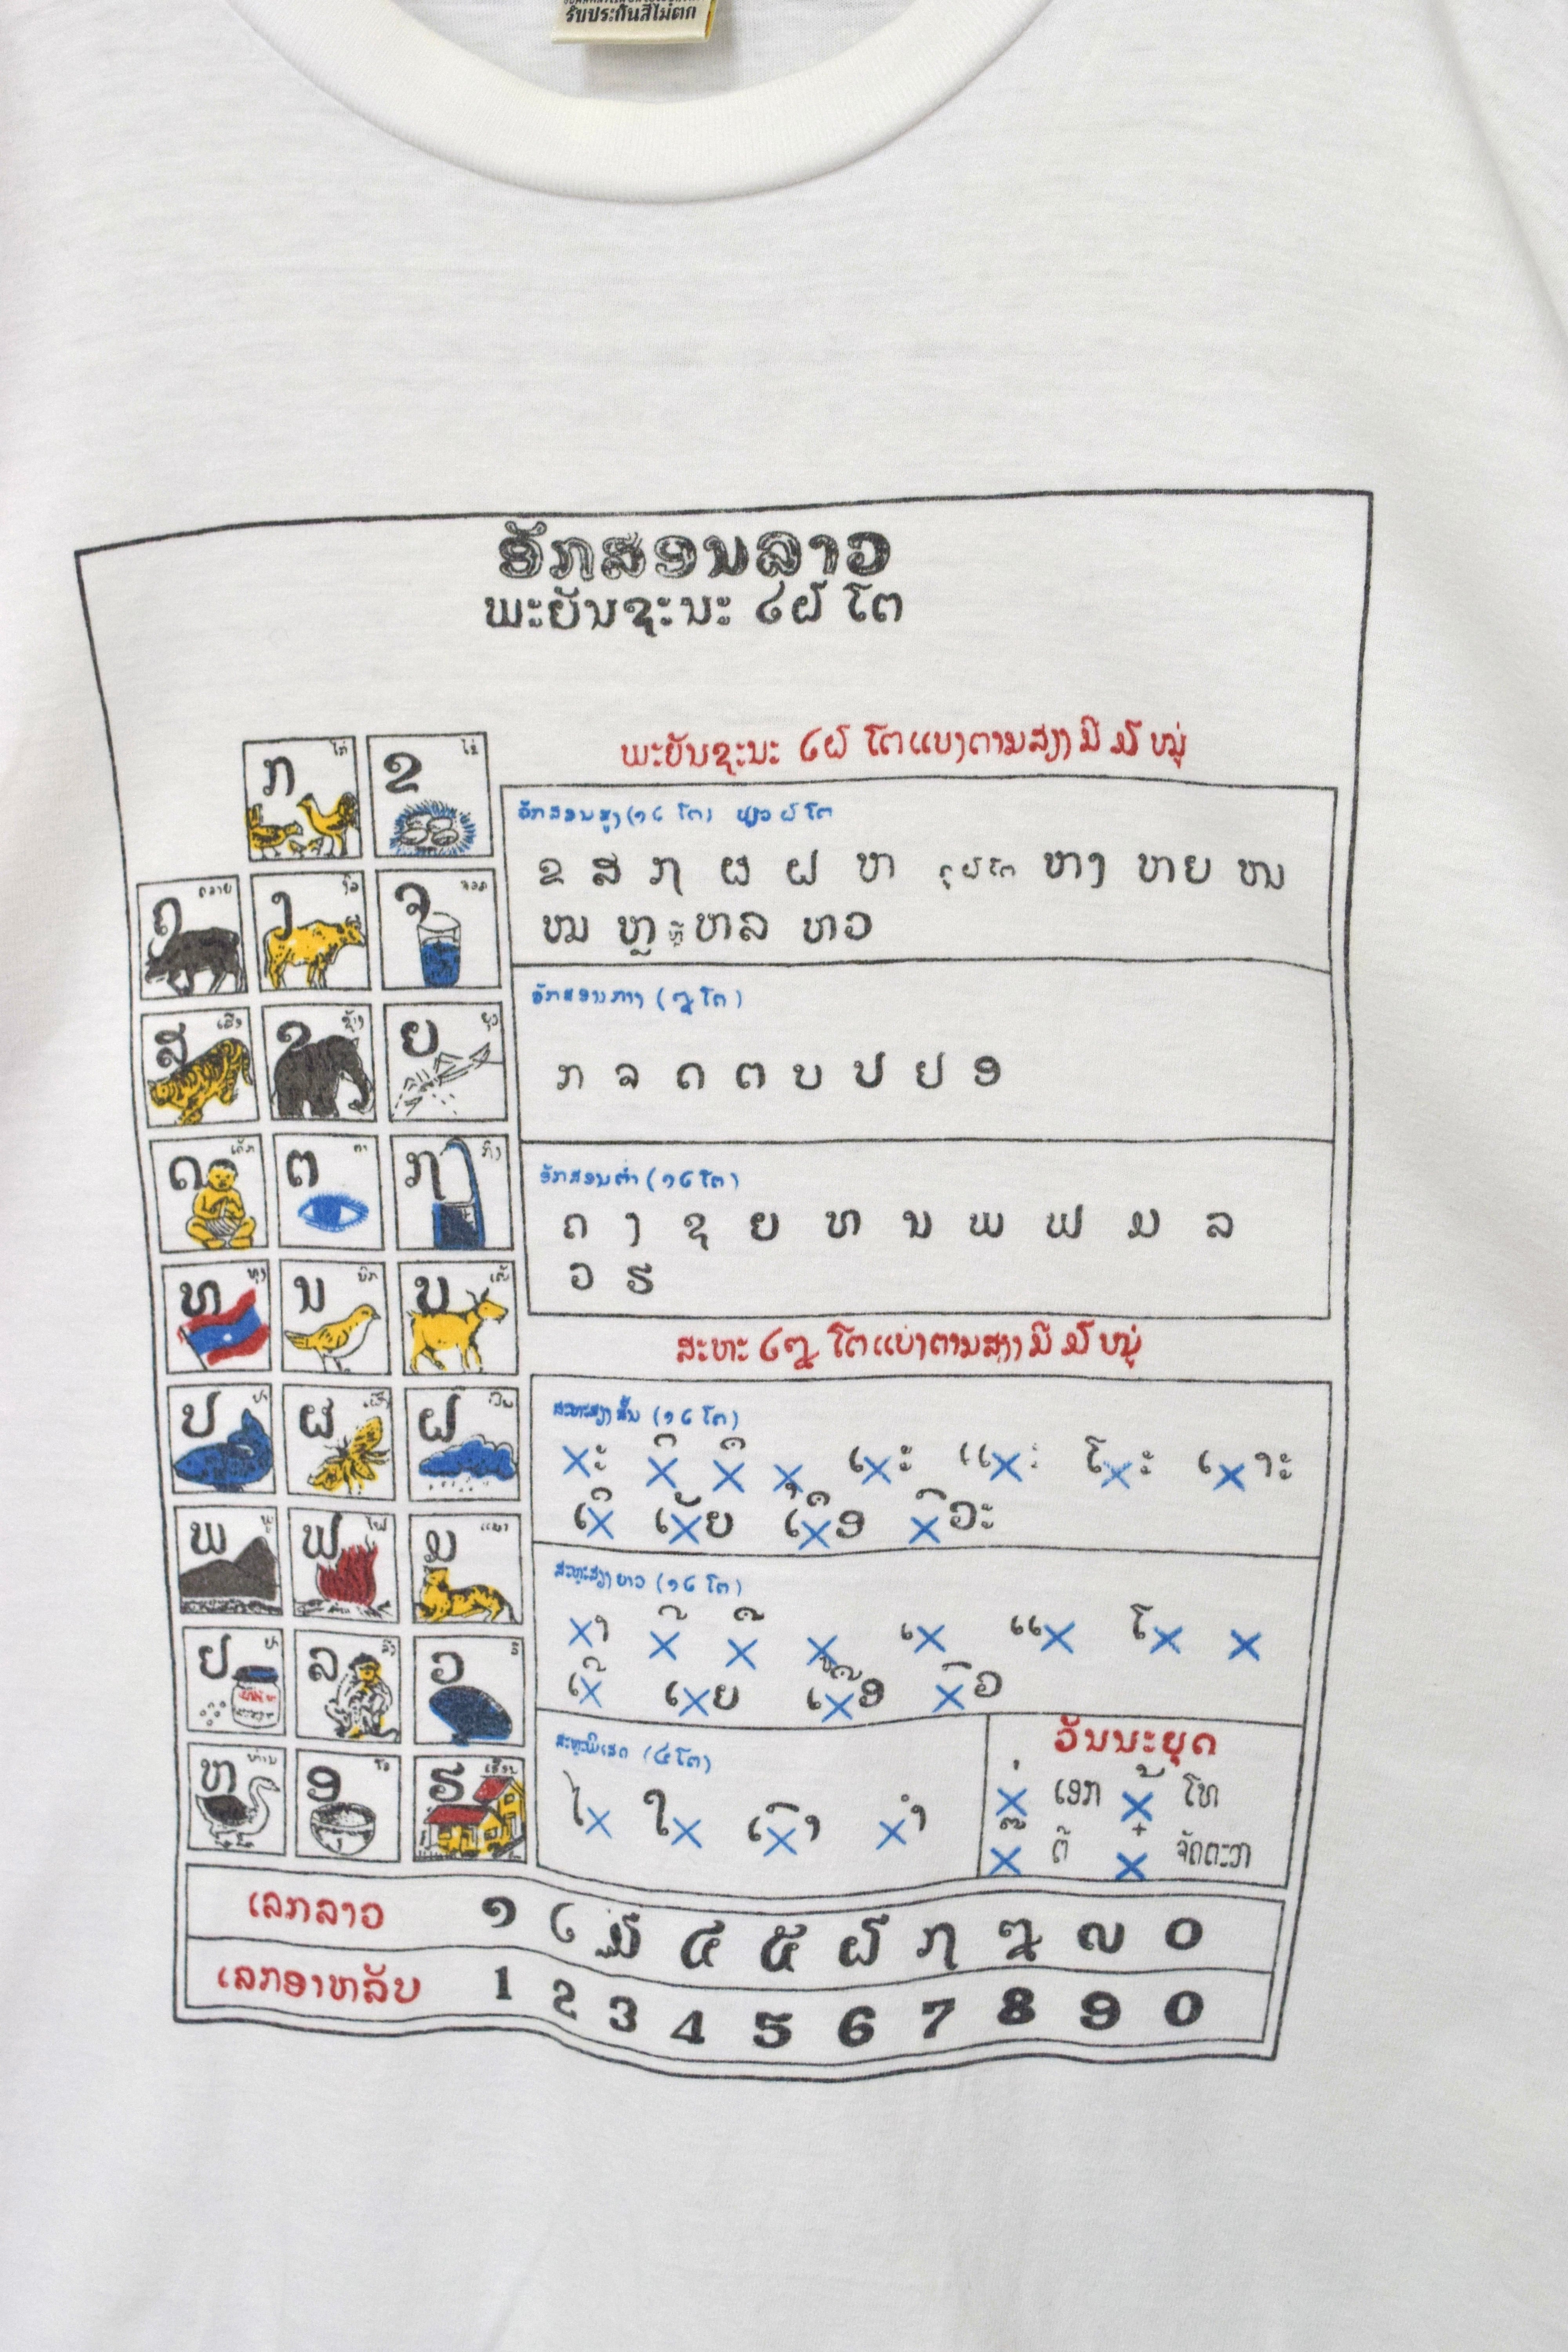 รับประกันสีไม่ตก
ອັກສອນລາວ
ພະຍັນຊະນະ ໒໖ ໂຕ
ພະຍັນຊະນະ ໒໖ ໂຕແບ່ງຕາມສຽງມີ ໓ ໝູ່
ກ ໄກ່
ຂ ໄຂ່
ຄ ຄວາຍ
ງ ງົວ
ຈ ຈອກ
ສ ເສືອ
ຊ ຊ້າງ
ຍ ຍຸງ
ດ ເດັກ
ຕ ຕາ
ຖ ຖົງ
ທ ທຸງ
ນ ນົກ
ບ ແບ້
ປ ປາ
ຜ ເຜິ້ງ
ຝ ຝົນ
ພ ພູ
ຟ ໄຟ
ມ ແມວ
ຢ ຢາ
ລ ລີງ
ວ ວີ
ຫ ຫ່ານ
ອ ໂອ
ຮ ເຮືອນ
ອັກສອນສູງ (໑໒ ໂຕ)
ຂ ສ ຖ ຜ ຝ ຫ ຫງ ຫຍ ໜ
ໝ ຫຼ ຫລ ຫວ
ອັກສອນກາງ (໘ ໂຕ)
ກ ຈ ດ ຕ ບ ປ ຢ ອ
ອັກສອນຕ່ຳ (໑໒ ໂຕ)
ຄ ງ ຊ ຍ ທ ນ ພ ຟ ມ ລ
ວ ຮ
ສະຫະ ໒໘ ໂຕແບ່ງຕາມສຽງມີ ໓ ໝູ່
ສະຫະສຽງສັ້ນ (໑໒ ໂຕ)
×ະ ×ິ ×ຶ ×ຸ ເ×ະ ແ×ະ ໂ×ະ ເ×າະ
ເ×ິ ເ×ັຍ ເ×ຶອ ×ົວະ
ສະຫະສຽງຍາວ (໑໒ ໂຕ)
×າ ×ີ ×ື ×ູ ເ× ແ× ໂ× ×
ເ×ີ ເ×ຍ ເ×ືອ ×ົວ
ສະຫະພິເສດ (໔ ໂຕ)
ໄ× ໃ× ເ×ົາ ×ຳ
ວັນນະຍຸດ
×່ ເອກ ×້ ໂທ
×໊ ຕີ ×໋ ຈັດຕະວາ
ເລກລາວ ໑ ໒ ໓ ໔ ໕ ໖ ໗ ໘ ໙ ໐
ເລກອາຫລັບ 1 2 3 4 5 6 7 8 9 0